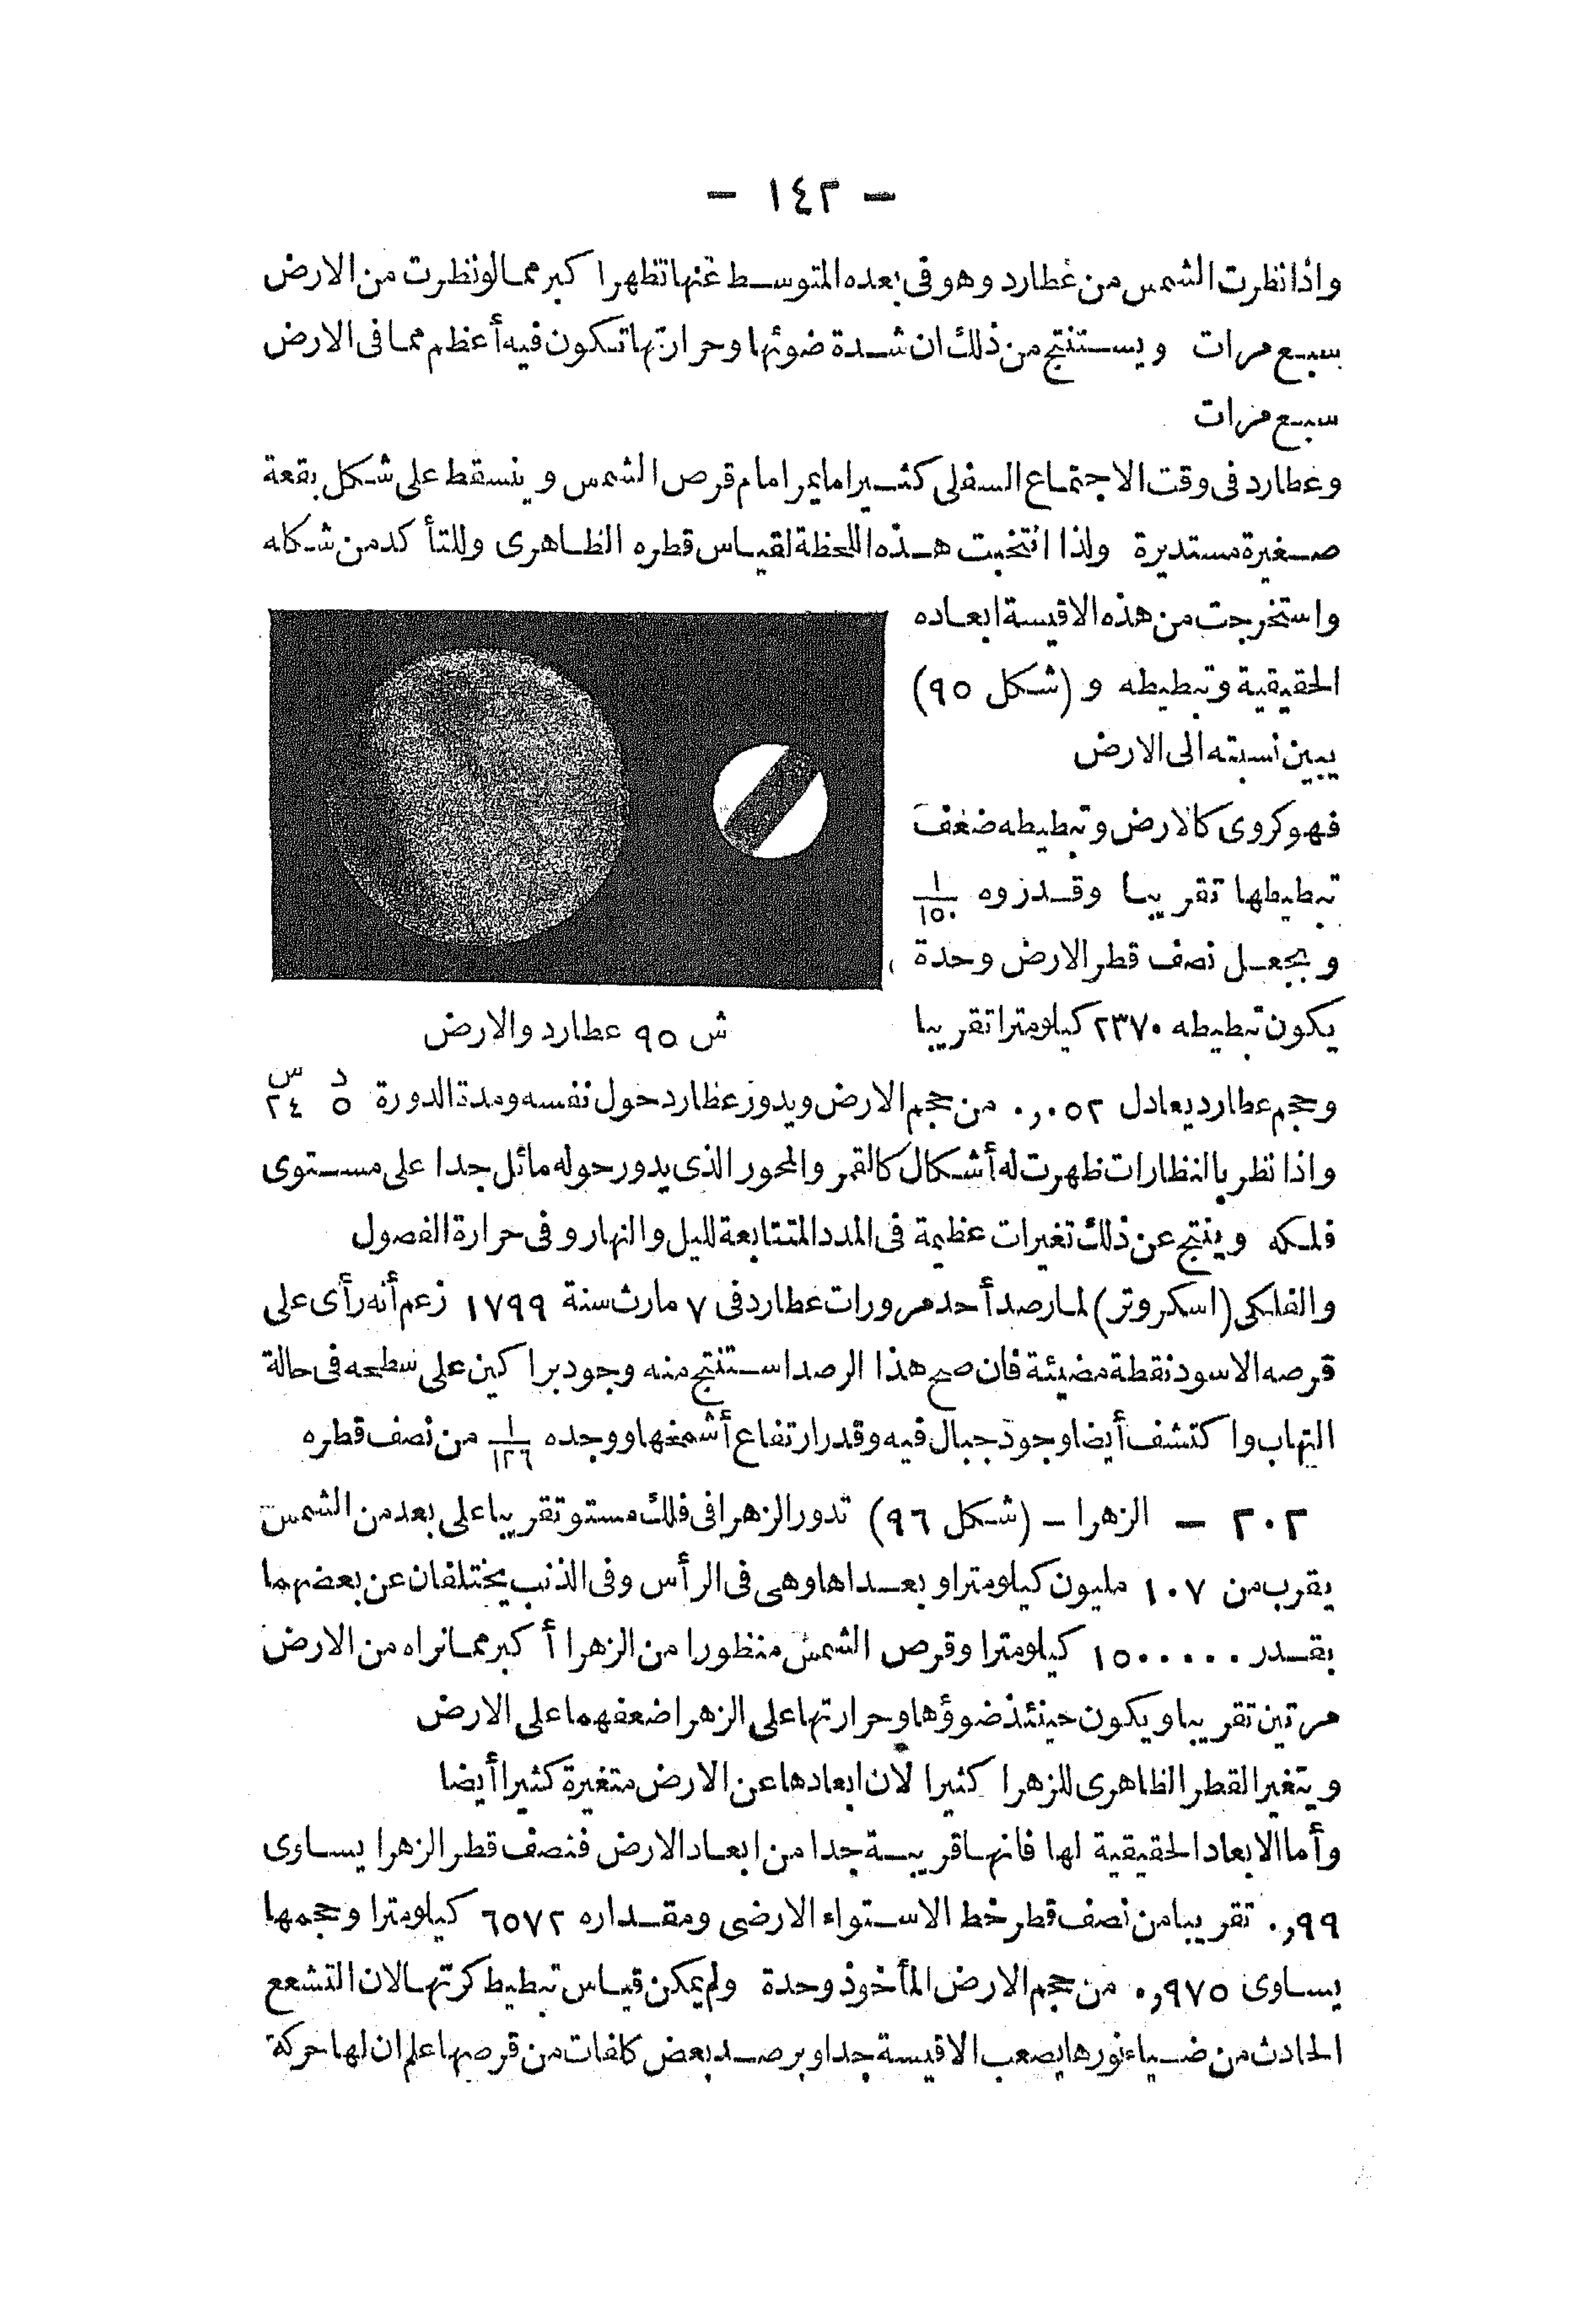 — ١٤٢ —
واذا نظرت الشمس من عطارد وهو فى بعده المتوسط عنها تظهر اكبر مما لو نظرت من الارض
سبع مرات ويستنتج من ذلك ان شدة ضوئها وحرارتها تكون فيه أعظم مما فى الارض
سبع مرات
وعطارد فى وقت الاجتماع السفلى كثيرا ما يمر امام قرص الشمس وينسقط على شكل بقعة
صغيرة مستديرة ولذا انتخبت هذه اللحظة لقياس قطره الظاهرى وللتأكد من شكله
واستخرجت من هذه الاقيسة ابعاده
الحقيقية وتبطيطه و (شكل ٩٥)
يبين نسبته الى الارض
فهو كروى كالارض وتبطيطه ضعف
تبطيطها تقريبا وقدروه ١/١٥٠
وبجعل نصف قطر الارض وحدة
يكون تبطيطه ٢٣٧٠ كيلومترا تقريبا
ش ٩٥ عطارد والارض
وحجم عطارد يعادل ٠,٠٥٢ من حجم الارض ويدور عطارد حول نفسه ومدة الدورة ٥ د ٢٤ س
واذا نظر بالنظارات ظهرت له أشكال كالقمر والمحور الذى يدور حوله مائل جدا على مستوى
فلكه وينتج عن ذلك تغيرات عظيمة فى المدد المتتابعة لليل والنهار وفى حرارة الفصول
والفلكى (اسكروتر) لما رصد أحد مرورات عطارد فى ٧ مارث سنة ١٧٩٩ زعم أنه رأى على
قرصه الاسود نقطة مضيئة فان صح هذا الرصد استنتج منه وجود براكين على سطحه فى حالة
التهاب واكتشف أيضا وجود جبال فيه وقدر ارتفاع أشمخها ووجده ١/١٢٦ من نصف قطره
٢٠٢ — الزهرا — (شكل ٩٦) تدور الزهرا فى فلك مستو تقريبا على بعد من الشمس
يقرب من ١٠٧ مليون كيلومترا وبعداها وهى فى الرأس وفى الذنب يختلفان عن بعضهما
بقدر ١٥٠٠٠٠٠ كيلومترا وقرص الشمس منظورا من الزهرا أكبر مما نراه من الارض
مرتين تقريبا ويكون حينئذ ضوؤها وحرارتها على الزهرا ضعفهما على الارض
ويتغير القطر الظاهرى للزهرا كثيرا لان ابعادها عن الارض متغيرة كثيرا أيضا
وأما الابعاد الحقيقية لها فانها قريبة جدا من ابعاد الارض فنصف قطر الزهرا يساوى
٠,٩٩ تقريبا من نصف قطر خط الاستواء الارضى ومقداره ٦٥٧٢ كيلومترا وحجمها
يساوى ٠,٩٧٥ من حجم الارض المأخوذ وحدة ولم يمكن قياس تبطيط كرتها لان التشعع
الحادث من ضياء نورها يصعب الاقيسة جدا وبرصد بعض كلفات من قرصها علم ان لها حركة